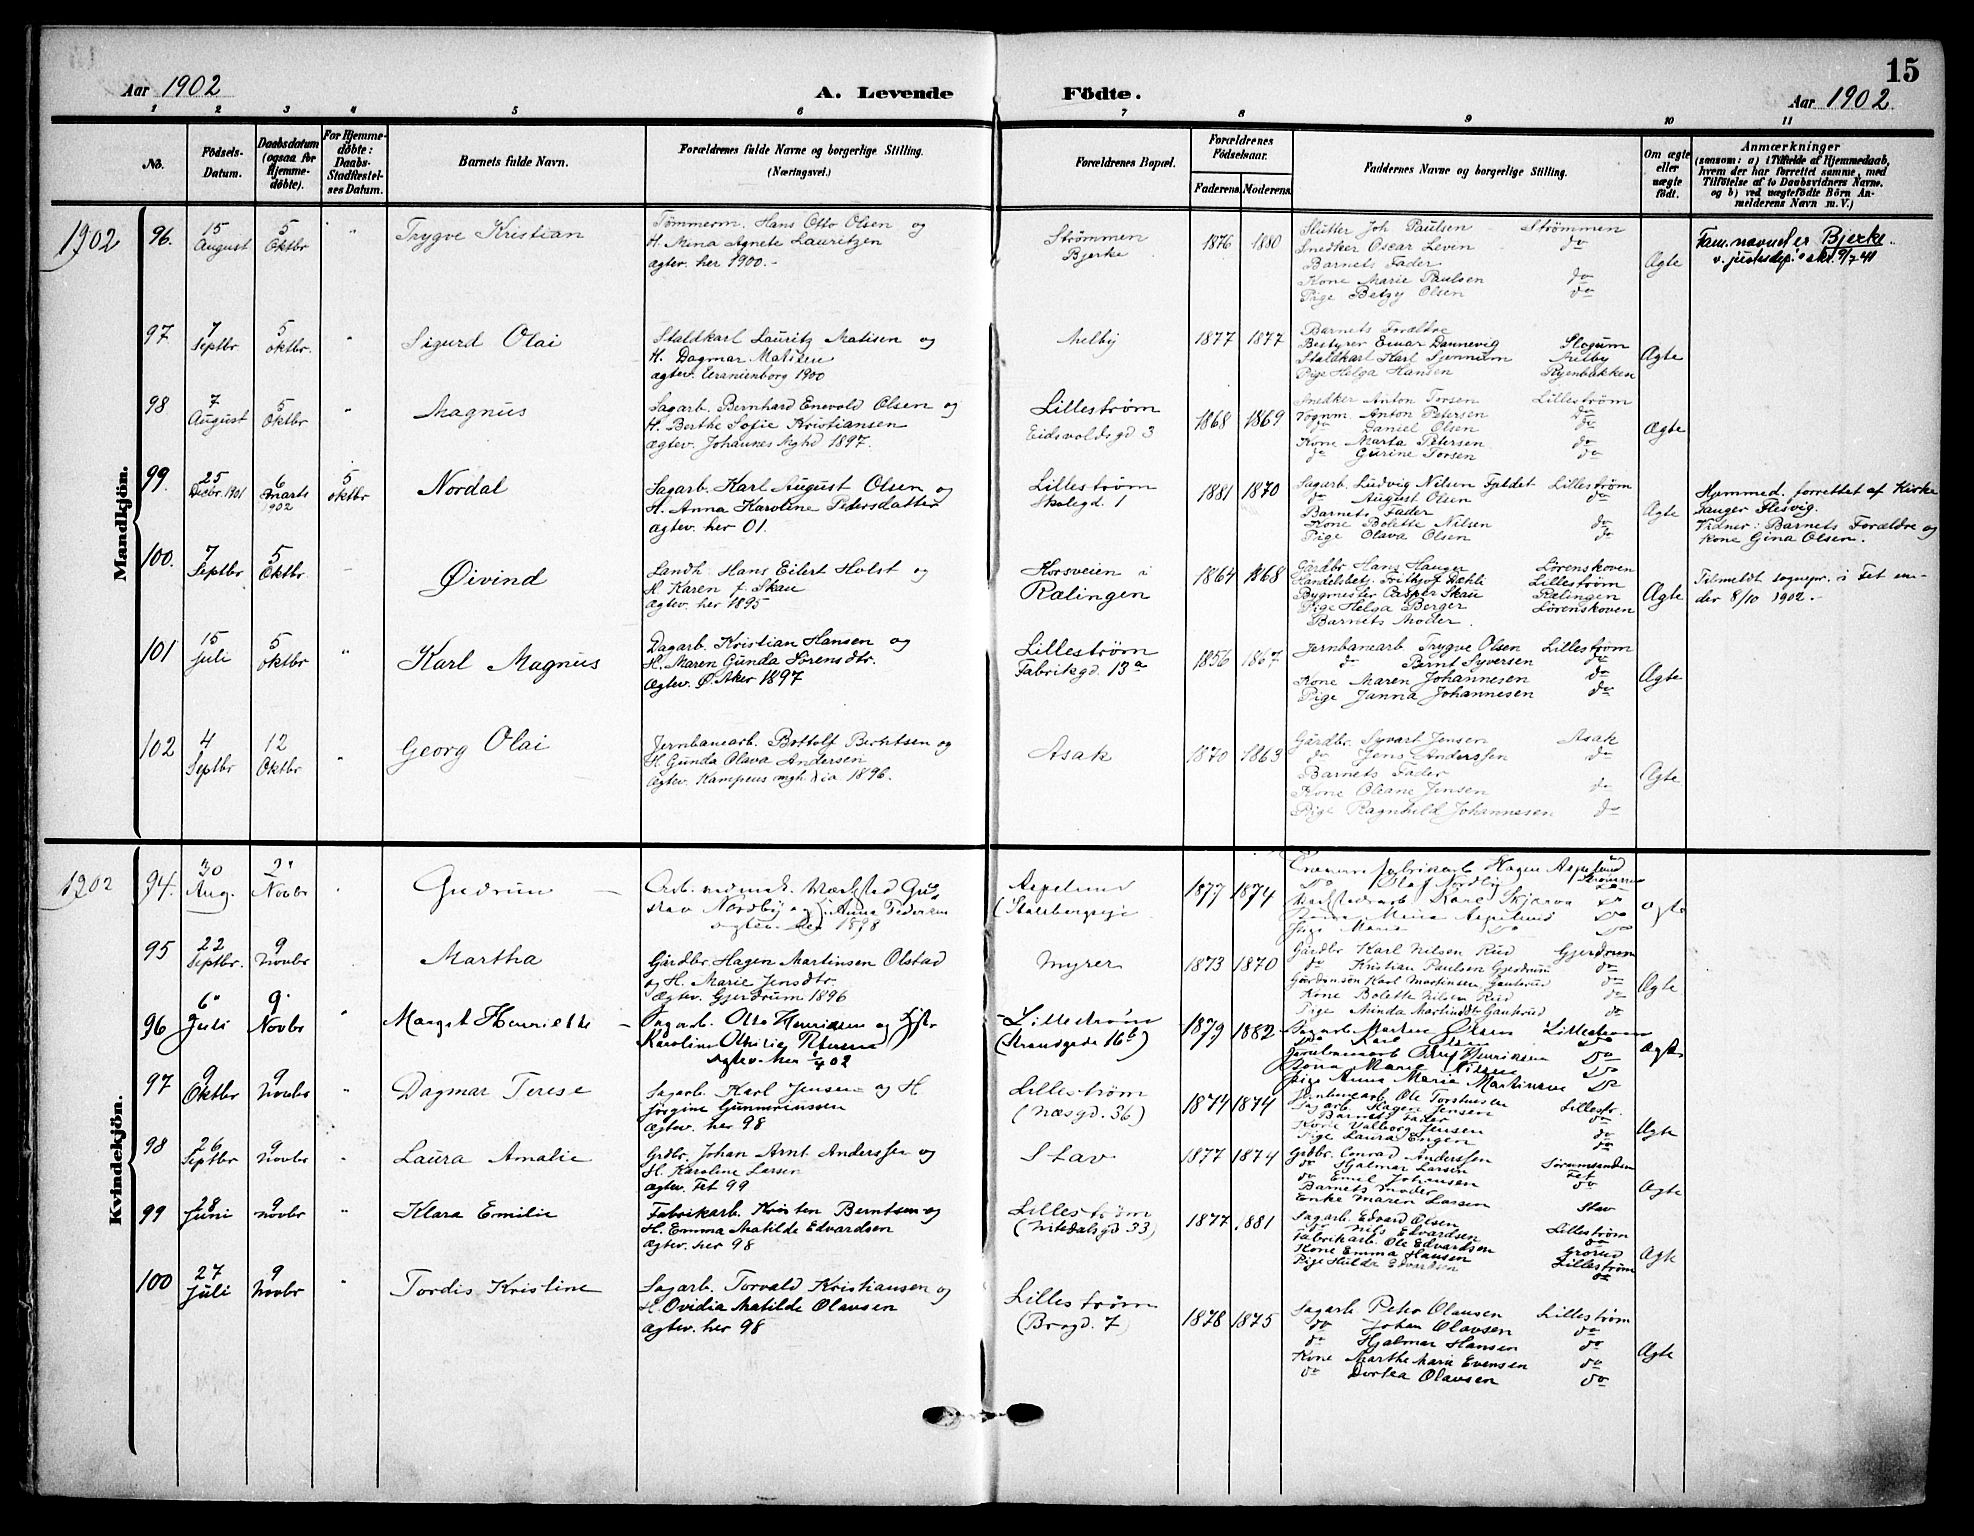 15
Aar 1902
A. Levende Födte.
Aar 1902
1 2 3 4 5 6 7 8 9 10 11
No.
Födsels-Datum.
Daabsdatum (ogsaa for Hjemme-döbte).
For Hjemme-döbte: Daabs-Stadfæstel-ses Datum.
Barnets fulde Navn.
Forældrenes fulde Navne og borgerlige Stilling.
(Næringsvei.)
Forældrenes Bopæl.
Forældrenes Födselsaar.
Faderens. Moderens.
Faddernes Navne og borgerlige Stilling.
Om ægte eller uægte födt.
Anmærkninger
(saasom: a) i Tilfælde af Hjemmedaab,
hvem der har forrettet samme, med
Tilföielse af to Daabsvidners Navne.
og b) ved uægtefödte Börn An-
melderens Navn m. V.)
Mandkjön.
1902
96. 15 August 5 Oktbr " Trygve Kristian
Tømmerm. Hans Otto Olsen og
H. Mina Agnete Lauritzen
Ægtev. her 1900.-
Strömmen
Bjerke
1876 1880
Slutter Joh Paulsen Strömmen
Snedker Oscar Leven do
Barnets Fader
Kone Marie Paulsen do
Pige Betzy Olsen do
Ægte
Fam.navnet er Bjerke.
v. justisdep.s skr. 9/7 41
97 7 Septbr 5 Oktbr. " Sigurd Olai
Staldkarl Lauritz Matisen og
H. Dagmar Matisen
Ægtev. Uranienborg 1900
Melby
1877 1877
Barnets Forældre
Bestyrer Einar Dannevig
Staldkarl Karl
Pige Helga Hansen Ryenbakken
Ægte
98 7 August 5 Oktbr " Magnus
Sagarb. Bernhard Enevold Olsen og
H. Berthe Sofie Kristiansen
Ægtev. Johannes Mghd 1897.
Lillestrøm
Eidsvoldsgd 3
1868 1869
Snedker Anton Torsen Lillestrøm
Vognm Anton Petersen do
do Daniel Olsen do
Kone Marta Petersen do
do Gurine Torsen do
Ægte
99. 25 Decbr. 1901 6 Marts 1902 5 Oktbr Nordal
Sagarb. Karl August Olsen og
H. Anna Karoline Pedersdatter
Ægtev. her 01.
Lillestrøm
Skolegd. 1
1881 1870
Sagarb. Ludvig Nilsen Lillestrøm
do August Olsen do
Barnets Fader
Kone Bolette Nilsen do
Pige Olava Olsen do
Ægte
Hjemmed. forrettet af Kirke
sanger Flesvig.
Vidner: Barnets Forældre og
Kone Gina Olsen.
100. 7 Septbr 5 Oktbr - Øivind
Landh. Hans Eilert Holst og
H. Karen f. Skau
Ægtev. her 1895
Korsveien i
Rælingen
1864 1868
Gårdbr Hans Haugen Lørenskoven
Handelsbet. Frithjof Dæhli Lillestrøm
Bygmester Casper Skau Rælingen
Pige Helga Berger Lørenskoven
Barnets Moder.
Ægte
Tilmeldt sognepr. i Fet un-
der 8/10 1902.-
101 15 Juli 5 Oktbr " Karl Magnus
Dagarb. Kristian Hansen og
H. Maren Gunda Sörensdtr.
Ægtev. Ø. Aker 1897
Lillestrøm
Fabrikgd. 13a
1856 1867
Jernbanearb Trygve Olsen Lillestrøm
do Bernt Syversen do
Kone Maren Johannesen do
Pige Janna Johannesen do
Ægte
102 4 Septbr 12 Oktbr " Georg Olai
Jernbanearb. Bottolf Berntsen og
H. Gunda Olava Andersen
Ægtev. Kampens mgh. Kria 1896.
Asak
1870 1863
Gårdbr. Syvart Jensen Asak
do Jens Anderssen do
Barnets Fader
Kone Oleane Jensen do
Pige Ragnhild Johannesen do
Ægte
Kvindekjön.
1902
94. 30 Aug. 2 Novbr " Gudrun
Arb. ved mek. Værksted Gus
tav Nordby og H. Anna Pedersen
ægtev. her 1898
Aspelund
(Stalsbergseje
1877 1874
Fabrikarb Hagen Aspelund
do Olaf Nordby
Karl Skjærva do
Kone Mina Aspelund do
Pige Maria do do
Ægte
95 22 Septbr. 9 Novbr " Martha
Gårdbr Hagen Martinsen Olstad
og H. Marie Jensdtr.
Ægtev. Gjerdrum 1896
Myrer
1873 1870
Gårdbr Karl Nilsen Rud Gjerdrum
do Kristian Paulsen Gjerdrum do
Gårdmandsön Karl Martinsen Gauterud do
Kone Bolette Nilsen Rud do
Pige Minda Martinsdtr Gauterud do
Ægte
96 6 Juli 9 Novbr " Margit Henriette
Sagarb. Otto Henriksen og Hustr
Karoline Othilie Petersen
Ægtev. her 1/4 02
Lillestrøm
(Strandgade 16b)
1879 1882
Sagarb. Olsen Lillestrøm
do Karl Olsen do
Jernbanearb Henriksen do
Kona Marie Nilsen do
Pige Anna Maria Martinsen do
Ægte
97 9 Oktbr 9 Novbr " Dagmar Terese
Sagarb. Karl Jensen og H
Jörgine Gunneriussen
Ægtev. her 98
Lillestrøm
(Næsgd. 36)
1874 1874
Jernbanearb Ole Torstensen Lillestr.
Sagarb. Hagen Jensen do
Barnets Fader
Kone Valborg Jensen do
Pige Laura Engen do
Ægte
98 26 Septbr 9 Novbr " Laura Amalie
Grdbr. Johan Arnt Anderssen og
H. Karoline Larsen
Ægtev. Fet 99
Stav
1877 1874
Grdbr. Conrad Anderssen Sørumsanden
do Hjalmar Larsen Fet
do Emil Johansen do
Barnets Moder
Enke Maren Larsen Stav
Ægte
99 28 Juni 9 Novbr " Klara Emilie
Fabrikarb. Kristen Berntsen og
H. Emma Matilde Edvardsen
Ægtev. her 98
Lillestrøm
(Nitedalsgd 33)
1877 1881
Sagarb. Edvard Olsen Lillestrøm
do Nils Edvardsen do
Fabrikarb. Ole Edvardsen Grorud
Kone Emma Hansen Lillestrøm
Pige Hulda Edvardsen do
Ægte
100 27 Juli 9 Novbr " Tordis Kristine
Sagarb. Torvald Kristiansen og
H. Ovidia Matilde Olausen
Ægtev. her 98
Lillestrøm
(Brogd. 7)
1878 1875
Sagarb Peter Olausen Lillestrøm
do Johan Olavsen do
do Hjalmar Hansen do
Kone Marthe Marie Evensen do
do Dortea Olausen do
Ægte